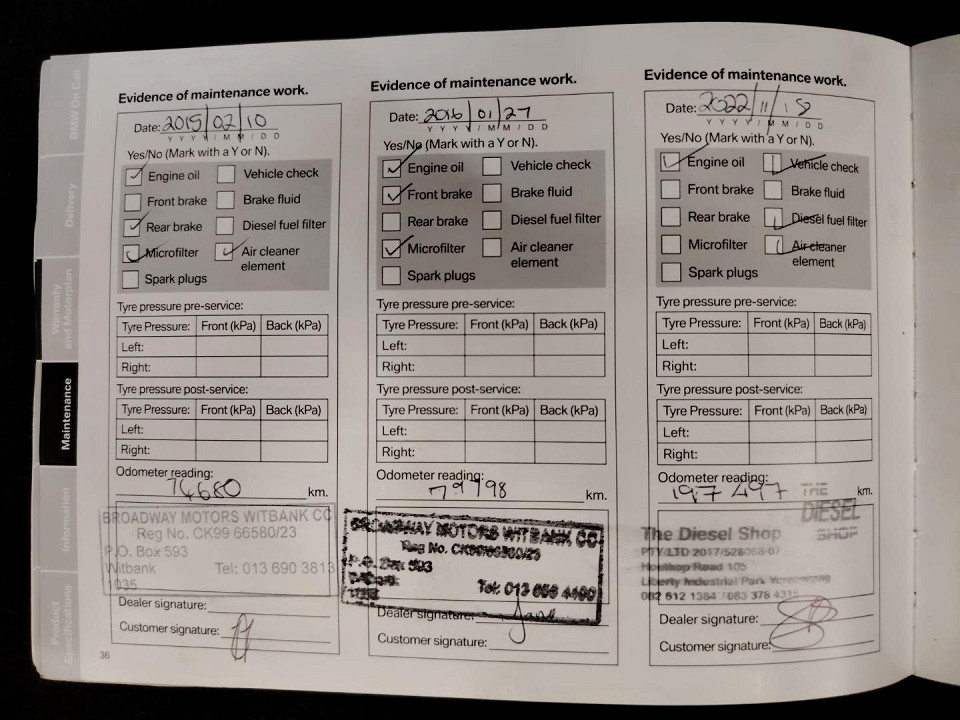 BMW On Call
Delivery
Warranty
and Motorplan
Maintenance
Information
Product
Specifications
Evidence of maintenance work.
Date: 2015/02/10
Y Y Y Y / M M / D D
Yes/No (Mark with a Y or N).
Engine oil Vehicle check
Front brake Brake fluid
Rear brake Diesel fuel filter
Microfilter Air cleaner
element
Spark plugs
Tyre pressure pre-service:
Tyre Pressure: Front (kPa) Back (kPa)
Left:
Right:
Tyre pressure post-service:
Tyre Pressure: Front (kPa) Back (kPa)
Left:
Right:
Odometer reading:
74680 km.
BROADWAY MOTORS WITBANK CC
Reg No. CK99 66580/23
P.O. Box 593
Witbank Tel: 013 690 3813
1035
Dealer signature:
Customer signature:
36
Evidence of maintenance work.
Date: 2016/01/27
Y Y Y Y / M M / D D
Yes/No (Mark with a Y or N).
Engine oil Vehicle check
Front brake Brake fluid
Rear brake Diesel fuel filter
Microfilter Air cleaner
element
Spark plugs
Tyre pressure pre-service:
Tyre Pressure: Front (kPa) Back (kPa)
Left:
Right:
Tyre pressure post-service:
Tyre Pressure: Front (kPa) Back (kPa)
Left:
Right:
Odometer reading:
79798 km.
BROADWAY MOTORS WITBANK CC
Reg No. CK99/66580/23
P.O. Box 593
Tel: 013 656 4460
Dealer signature:
Customer signature:
Evidence of maintenance work.
Date: 2022/11/
Y Y Y Y / M M / D D
Yes/No (Mark with a Y or N).
Engine oil Vehicle check
Front brake Brake fluid
Rear brake Diesel fuel filter
Microfilter Air cleaner
element
Spark plugs
Tyre pressure pre-service:
Tyre Pressure: Front (kPa) Back (kPa)
Left:
Right:
Tyre pressure post-service:
Tyre Pressure: Front (kPa) Back (kPa)
Left:
Right:
Odometer reading:
197 497 km.
THE
DIESEL
SHOP
The Diesel Shop
PTY LTD 2017/528068/07
Houtkop Road 105
Liberty Industrial Park Vereeniging
082 612 1384 083 378
Dealer signature:
Customer signature: